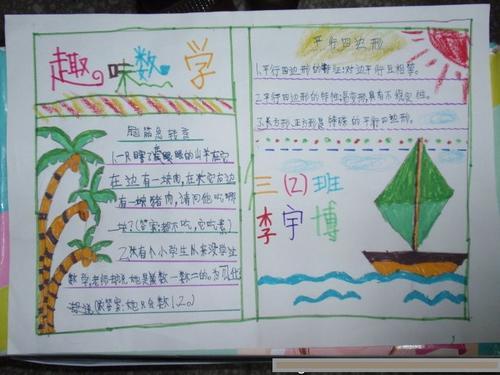 趣味数学
脑筋急转弯
1.一只瞎了眼的山羊在它
在边有一块肉,在它右边
有一块猪肉,请问他吃哪
块?(答案都不吃,它吃素)
2.还有个小学生从来没学过
数学,老师却说她是数一数二的,为
却说(答案:她只会数1.2。)
平行四边形
1.平行四边形的特征:对边平行且相等。
2.平行四边形的特性:易变形,具有不稳定性。
3.长方形,正方形是特殊的平行四边形。
三(2)班
李宇博